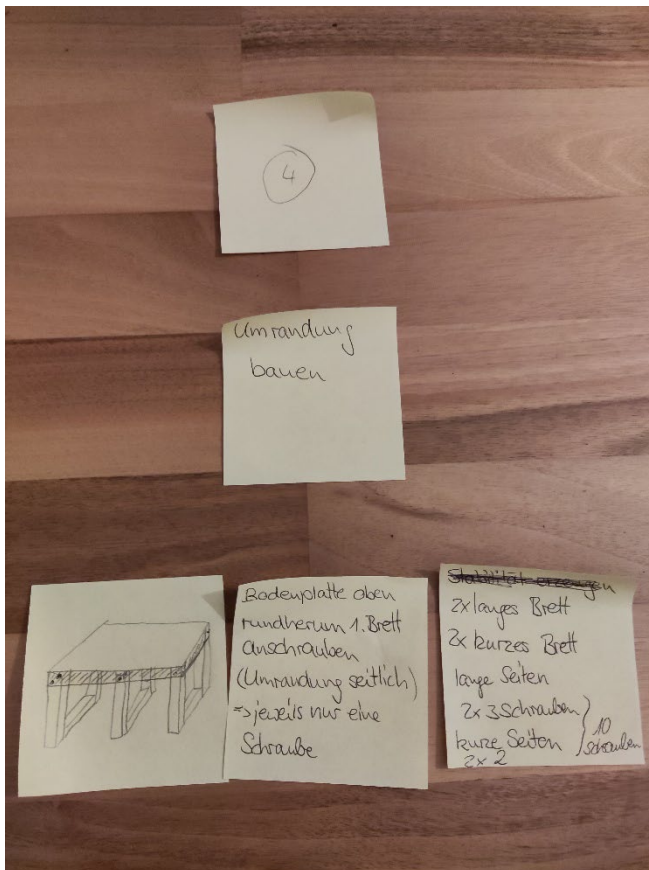 4
Umrandung
bauen
Bodenplatte oben
rundherum 1. Brett
anschrauben
(Umrandung seitlich)
=> jeweils nur eine
Schraube
Stabilität erzeugen
2x langes Brett
2x kurzes Brett
lange Seiten
2x 3 Schrauben
kurze Seiten
2x 2
10
Schrauben